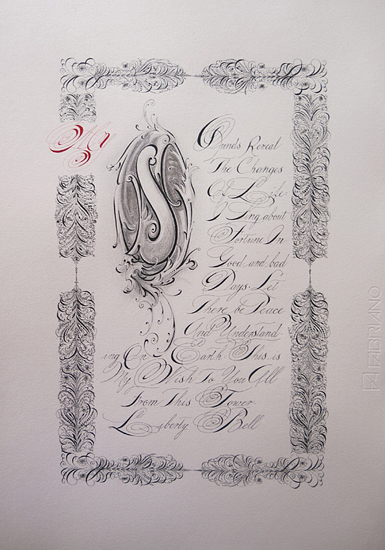 My
S
Ounds Reveal
The Changes
Of Life
I Sing about
Fortune In
Good and bad
Days. Let
There be Peace
And Understand
ing On Earth This is
My Wish To You All
From This Power
Liberty Bell
FABRIANO